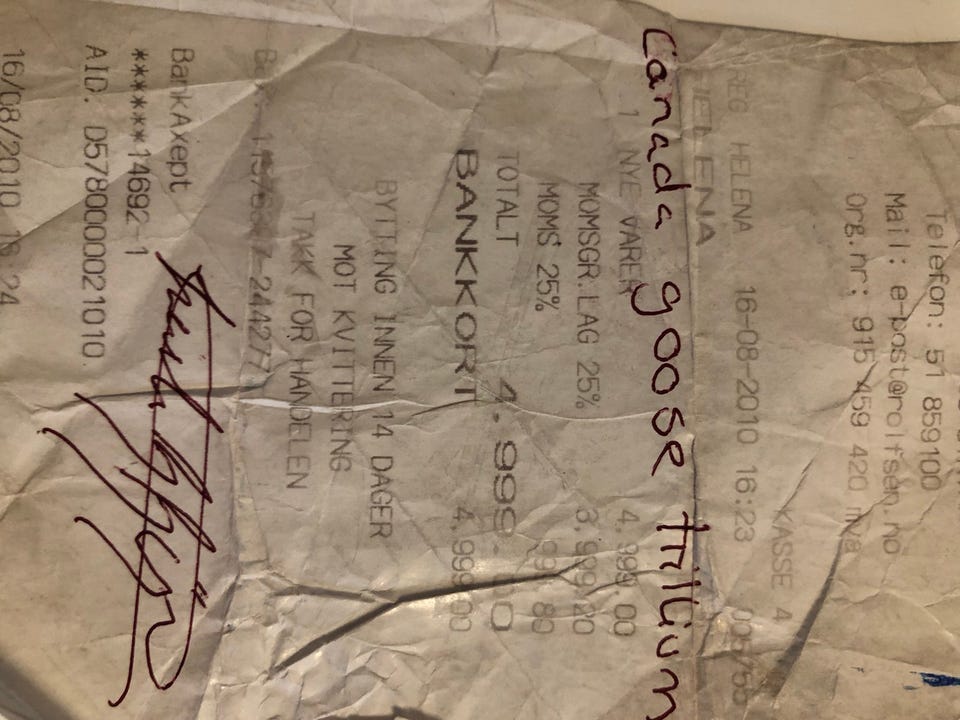 Telefon: 51 859100
Mail: e-post@rolfsen.no
Org.nr: 915 459 420 mva
KASSE 4
HELENA 16-08-2010 16:23
HELENA
Canada goose trillium
1 NYE VARER 4.999,00
MOMSGR.LAG 25% 3.999,20
MOMS 25% 999,80
TOTALT 4.999,00
BANKKORT 4.999,00
BYTTING INNEN 14 DAGER
MOT KVITTERING
TAKK FOR HANDELEN
BankAxept
*****14692-1
AID: D5780000021010
16/08/2010